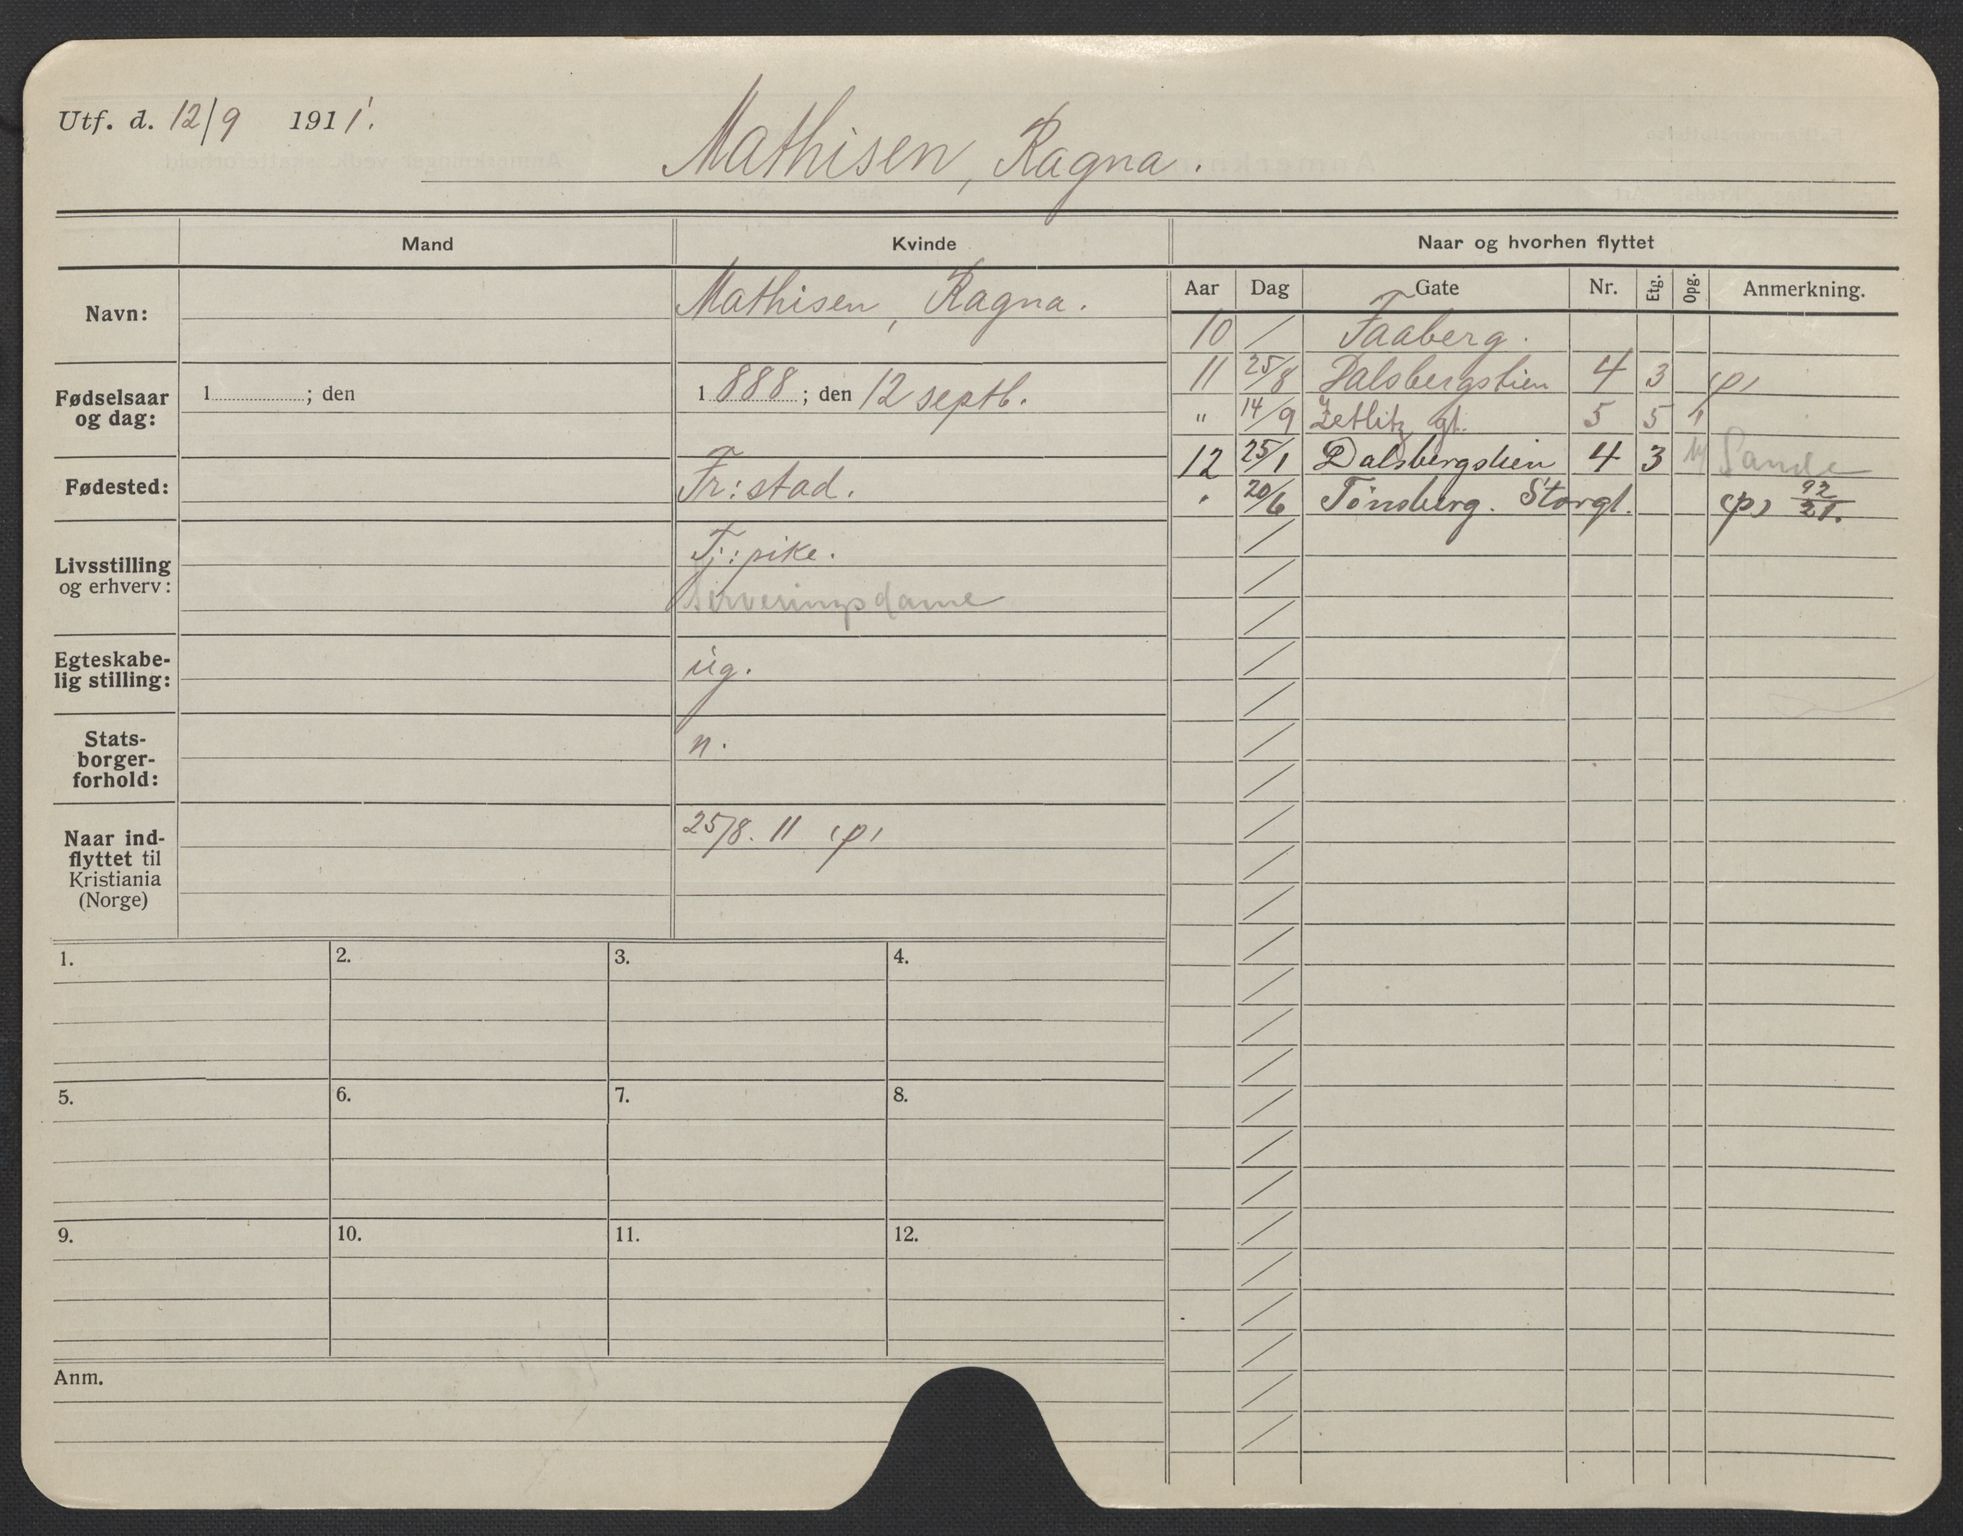 Utf. d. 12/9 1911.
Mathisen, Ragna.
Mand
Kvinde
Naar og hvorhen flyttet
Navn:
Mathisen, Ragna.
Fødselsaar
og dag:
1 ; den
1 888 ; den 12 septb.
Fødested:
Fr:stad.
Livsstilling
og erhverv:
Tj:pike.
Serveringsdame
Egteskabe-
lig stilling:
ug.
Stats-
borger-
forhold:
n.
Naar ind-
flyttet til
Kristiania
(Norge)
25/8. 11 (p)
Aar Dag Gate Nr. Etg. Opg. Anmerkning.
10 / Faaberg.
11 25/8 Dalsbergstien 4 3 (p)
" 14/9 Zetlitz gt. 5 5 1
12 25/1 Dalsbergstien 4 3 Sande
" 20/6 Tönsberg. Storgt. (p) 92/21.
1. 2. 3. 4.
5. 6. 7. 8.
9. 10. 11. 12.
Anm.